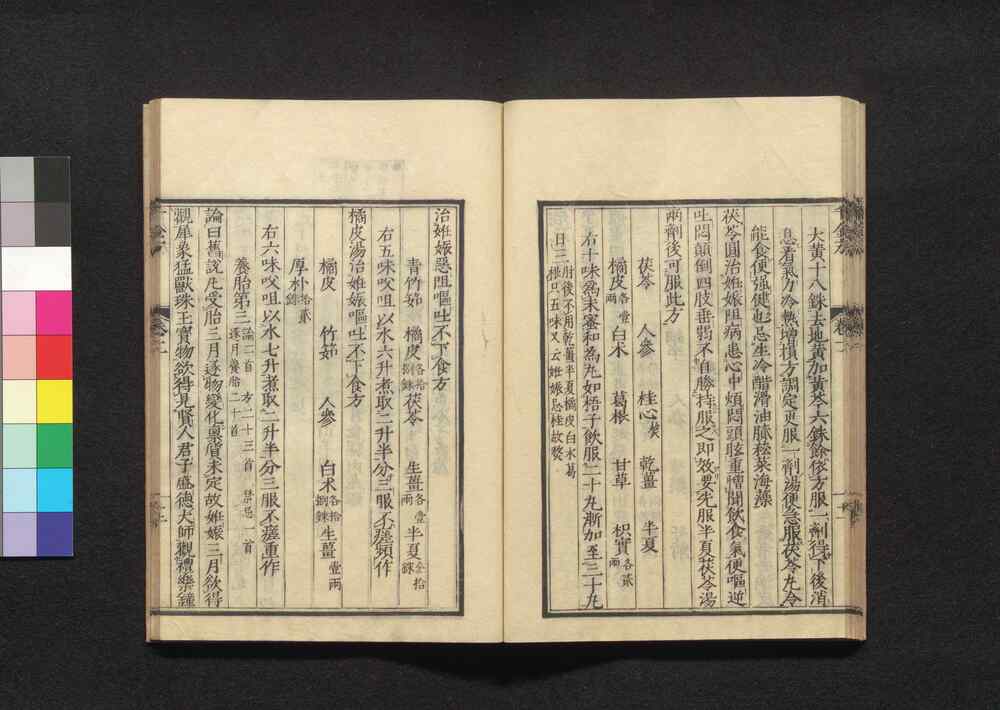 大黃十八銖去地黃加黃芩六銖餘依方服一劑得下後消
息看氣力冷熱增損方調定更服一劑湯便急服茯苓丸令
能食便强健也忌生冷醋滑油膩菘菜海藻
茯苓圓治姙娠阻病患心中煩悶頭眩重憎聞飲食氣便嘔逆
吐悶顛倒四肢垂弱不自勝持服之即效要先服半夏茯苓湯
兩劑後可服此方
茯苓 人參 桂心熬 乾薑 半夏
橘皮各壹兩 白朮 葛根 甘草 枳實各貳兩
右十味爲末蜜和爲丸如梧子飲服二十丸漸加至三十丸
日三肘後不用乾薑半夏橘皮白朮葛根只五味又云姙娠忌桂故熬
治姙娠惡阻嘔吐不下食方
青竹茹 橘皮各拾捌銖 茯苓 生薑各壹兩 半夏叄拾銖
右五味㕮咀以水六升煮取二升半分三服不瘥頻作
橘皮湯治姙娠嘔吐不下食方
橘皮 竹茹 人參 白朮各拾捌銖 生薑壹兩
厚朴拾貳銖
右六味㕮咀以水七升煮取二升半分三服不瘥重作
養胎第三論二首 方二十三首 禁忌一首 逐月養胎二十首
論曰舊說凡受胎三月逐物變化稟質未定故姙娠三月欲得
觀犀象猛獸珠玉寶物欲得見賢人君子盛德大師觀禮樂鐘